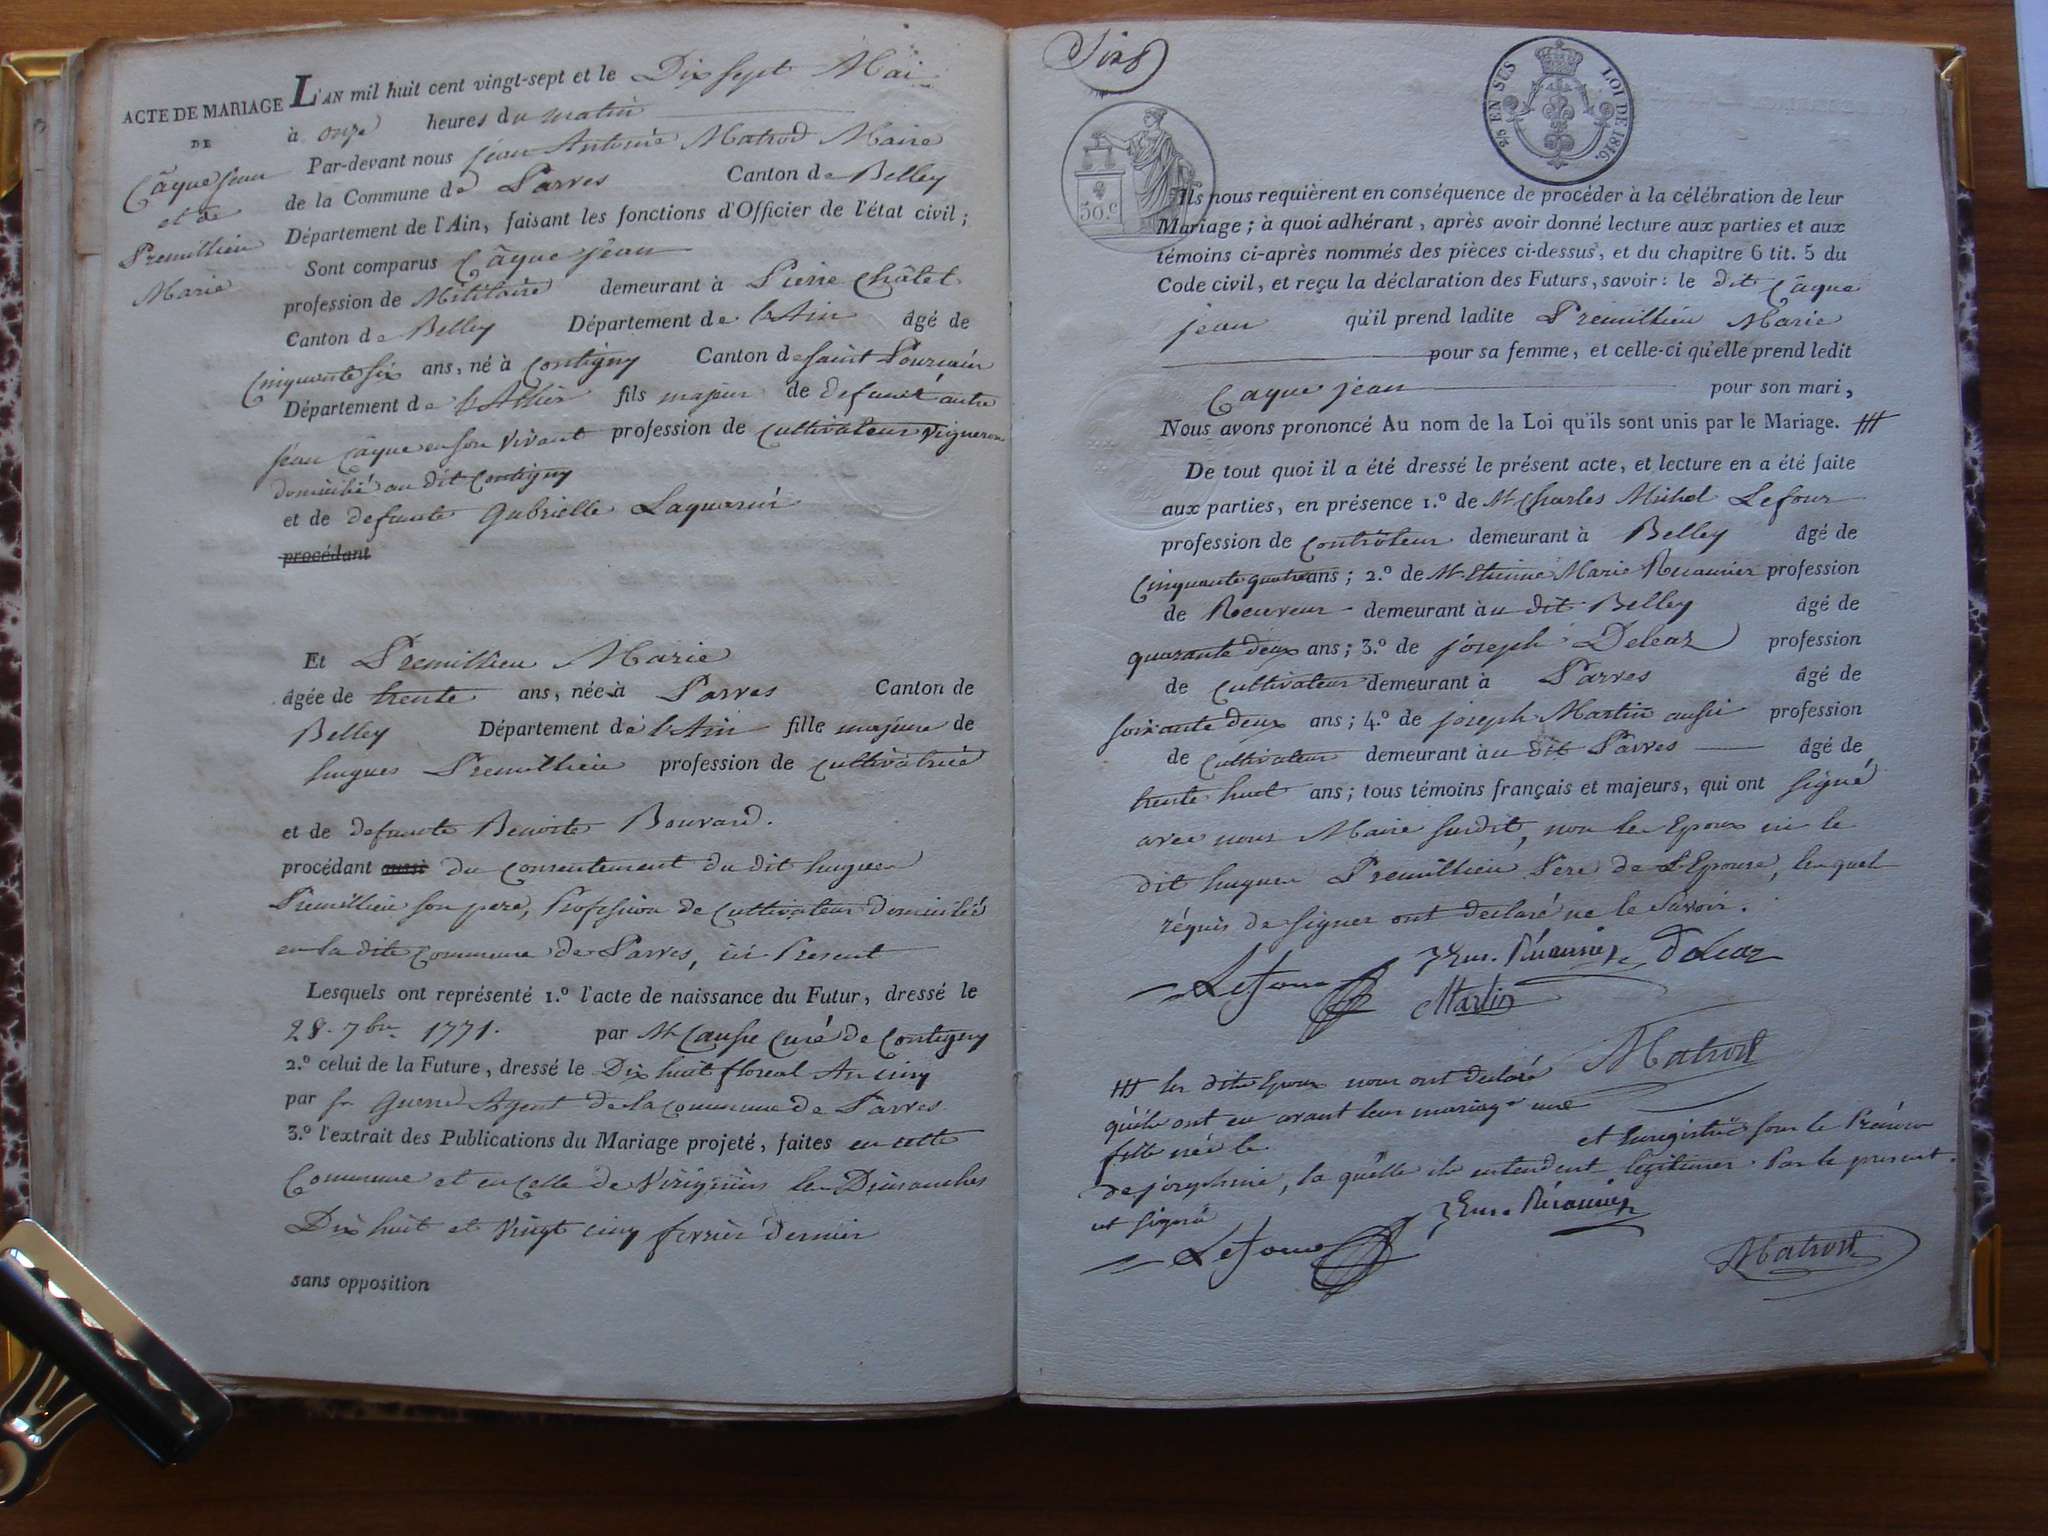 ACTE DE MARIAGE
DE
Câque jean
et de
Premillieu
Marie
L'AN mil huit cent vingt-sept et le Dix Sept Mai
à onze heures du matin
Par-devant nous jean Antoine Matrod Maire
de la Commune de Parves Canton de Belley
Département de l'Ain, faisant les fonctions d'Officier de l'état civil;
Sont comparus Câque jean
profession de Militaire demeurant à Pierre Châtel
Canton de Belley Département de l'Ain âgé de
Cinquante six ans, né à Contigny Canton de saint Pourcain
Département de l'Allier fils majeur de defunt autre
jean Câque en son vivant profession de cultivateur vigneron
domicilié au dit Contigny
et de defunte Gabrielle Laquarin
procédant
Et Premillieu Marie
âgée de trente ans, née à Parves Canton de
Belley Département de l'Ain fille majeure de
hugues Premillieu profession de cultivatrice
et de defunte Benoite Bouvard.
procédant aussi du consentement du dit hugues
Premillieu son pere, Profession de cultivateur domicilié
en la dite commune de Parves, ici Present
Lesquels ont représenté 1.º l'acte de naissance du Futur, dressé le
28. 7bre 1771. par Mr Causse Curé de Contigny
2.º celui de la Future, dressé le Dix huit floreal An cinq
par fr Guerre Agent de la commune de Parves
3.º l'extrait des Publications du Mariage projeté, faites en cette
Commune et en celle de Virignin les Dimanches
Dix huit et vingt cinq fevrier dernier
sans opposition
50.c
2/5 EN SUS LOI DE 1816.
Ils nous requièrent en conséquence de procéder à la célébration de leur
Mariage; à quoi adhérant, après avoir donné lecture aux parties et aux
témoins ci-après nommés des pièces ci-dessus, et du chapitre 6 tit. 5 du
Code civil, et reçu la déclaration des Futurs, savoir: le dit Câque
jean qu'il prend ladite Premillieu Marie
pour sa femme, et celle-ci qu'elle prend ledit
Caque jean pour son mari,
Nous avons prononcé Au nom de la Loi qu'ils sont unis par le Mariage. ///
De tout quoi il a été dressé le présent acte, et lecture en a été faite
aux parties, en présence 1.º de Mr Charles Michel Lefour
profession de Contrôleur demeurant à Belley âgé de
Cinquante quatre ans; 2.º de Mr Etienne Marie Récamier profession
de Receveur demeurant au dit Belley âgé de
quarante deux ans; 3.º de joseph Deleaz profession
de cultivateur demeurant à Parves âgé de
soixante deux ans; 4.º de joseph Martin aussi profession
de cultivateur demeurant au dit Parves âgé de
trente huit ans; tous témoins français et majeurs, qui ont signé
avec nous Maire susdit, non les Epoux ni le
dit hugues Premillieu Père de L'Epouse, lesquels
réquis de signer ont declaré ne le savoir.
Lefour Récamier Deleaz
Martin
Matrod
/// les dits Epoux nous ont declaré
qu'ils ont eu avant leur mariage une
fille née le et Enregistrée sous le Prénom
de josephine, la quelle ils entendent legitimer Par le present.
et signé
Lefour Récamier
Matrod